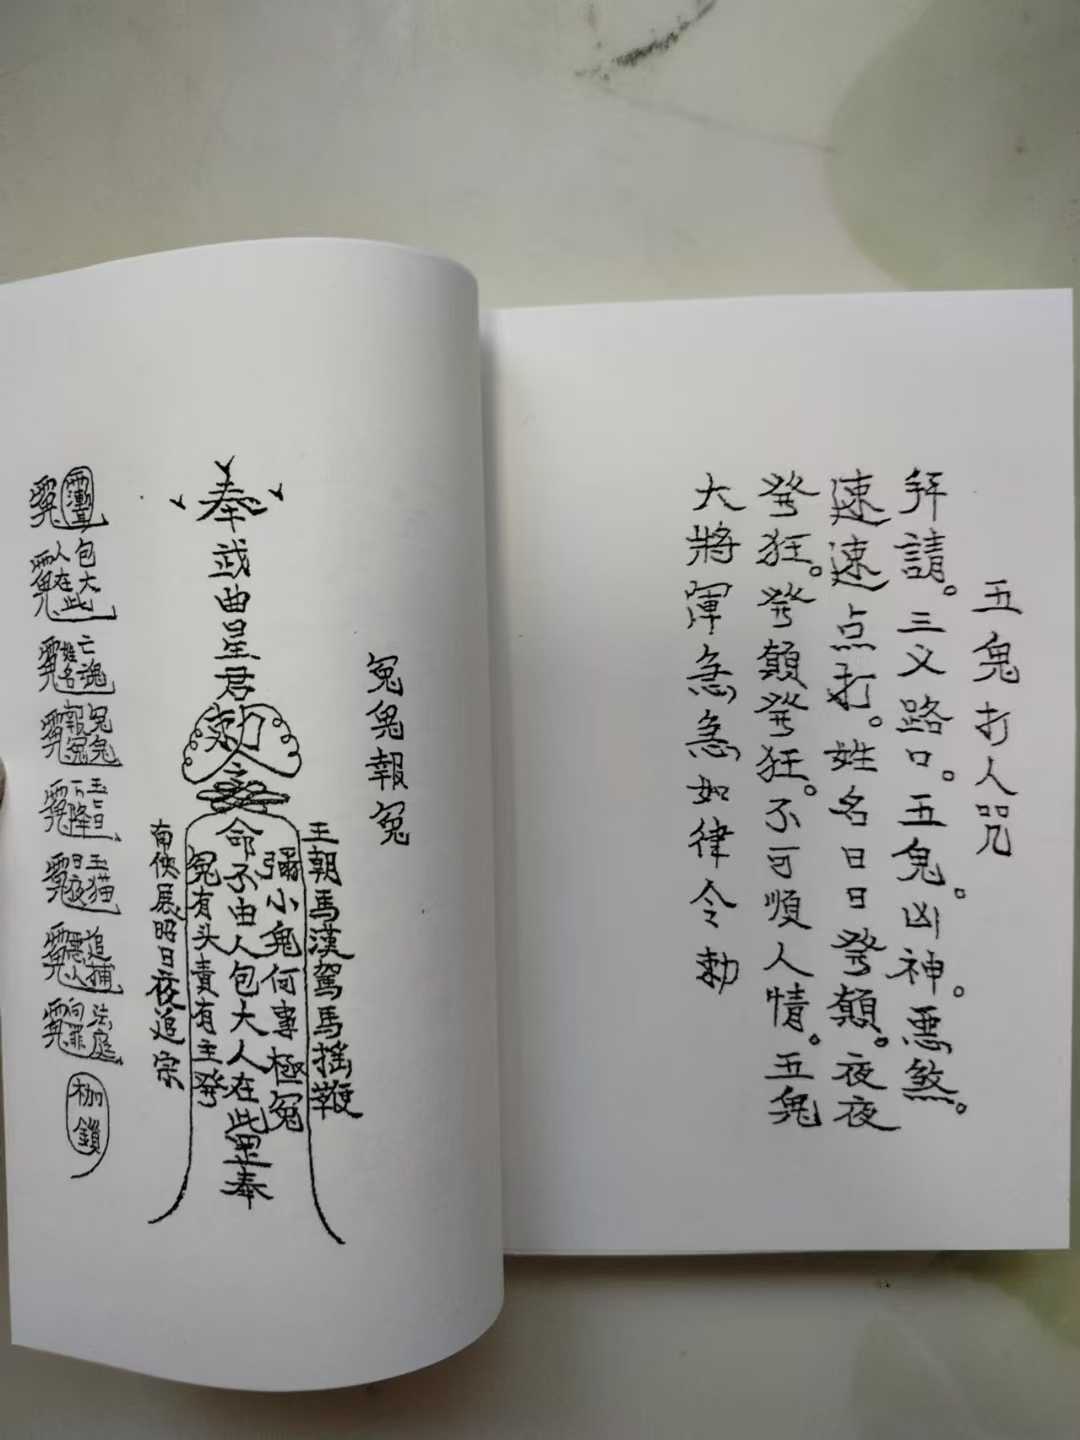 五鬼打人咒
拜請。三义路口。五鬼。凶神。悪煞。
速速点打。姓名日日發顛。夜夜
發狂。發顛發狂。不可順人情。五鬼
大將軍急急如律令勅
冤鬼報冤
王朝馬漢駕馬摇鞭
小鬼何事極冤
奉武曲星君勅令
命不由人包大人在此罡奉
冤有头責有主發
南俠展昭日夜追宗
包大人在此
亡魂姓名
冤鬼報冤
玉猫日夜
追捕惡人
法庭问罪
枷鎖